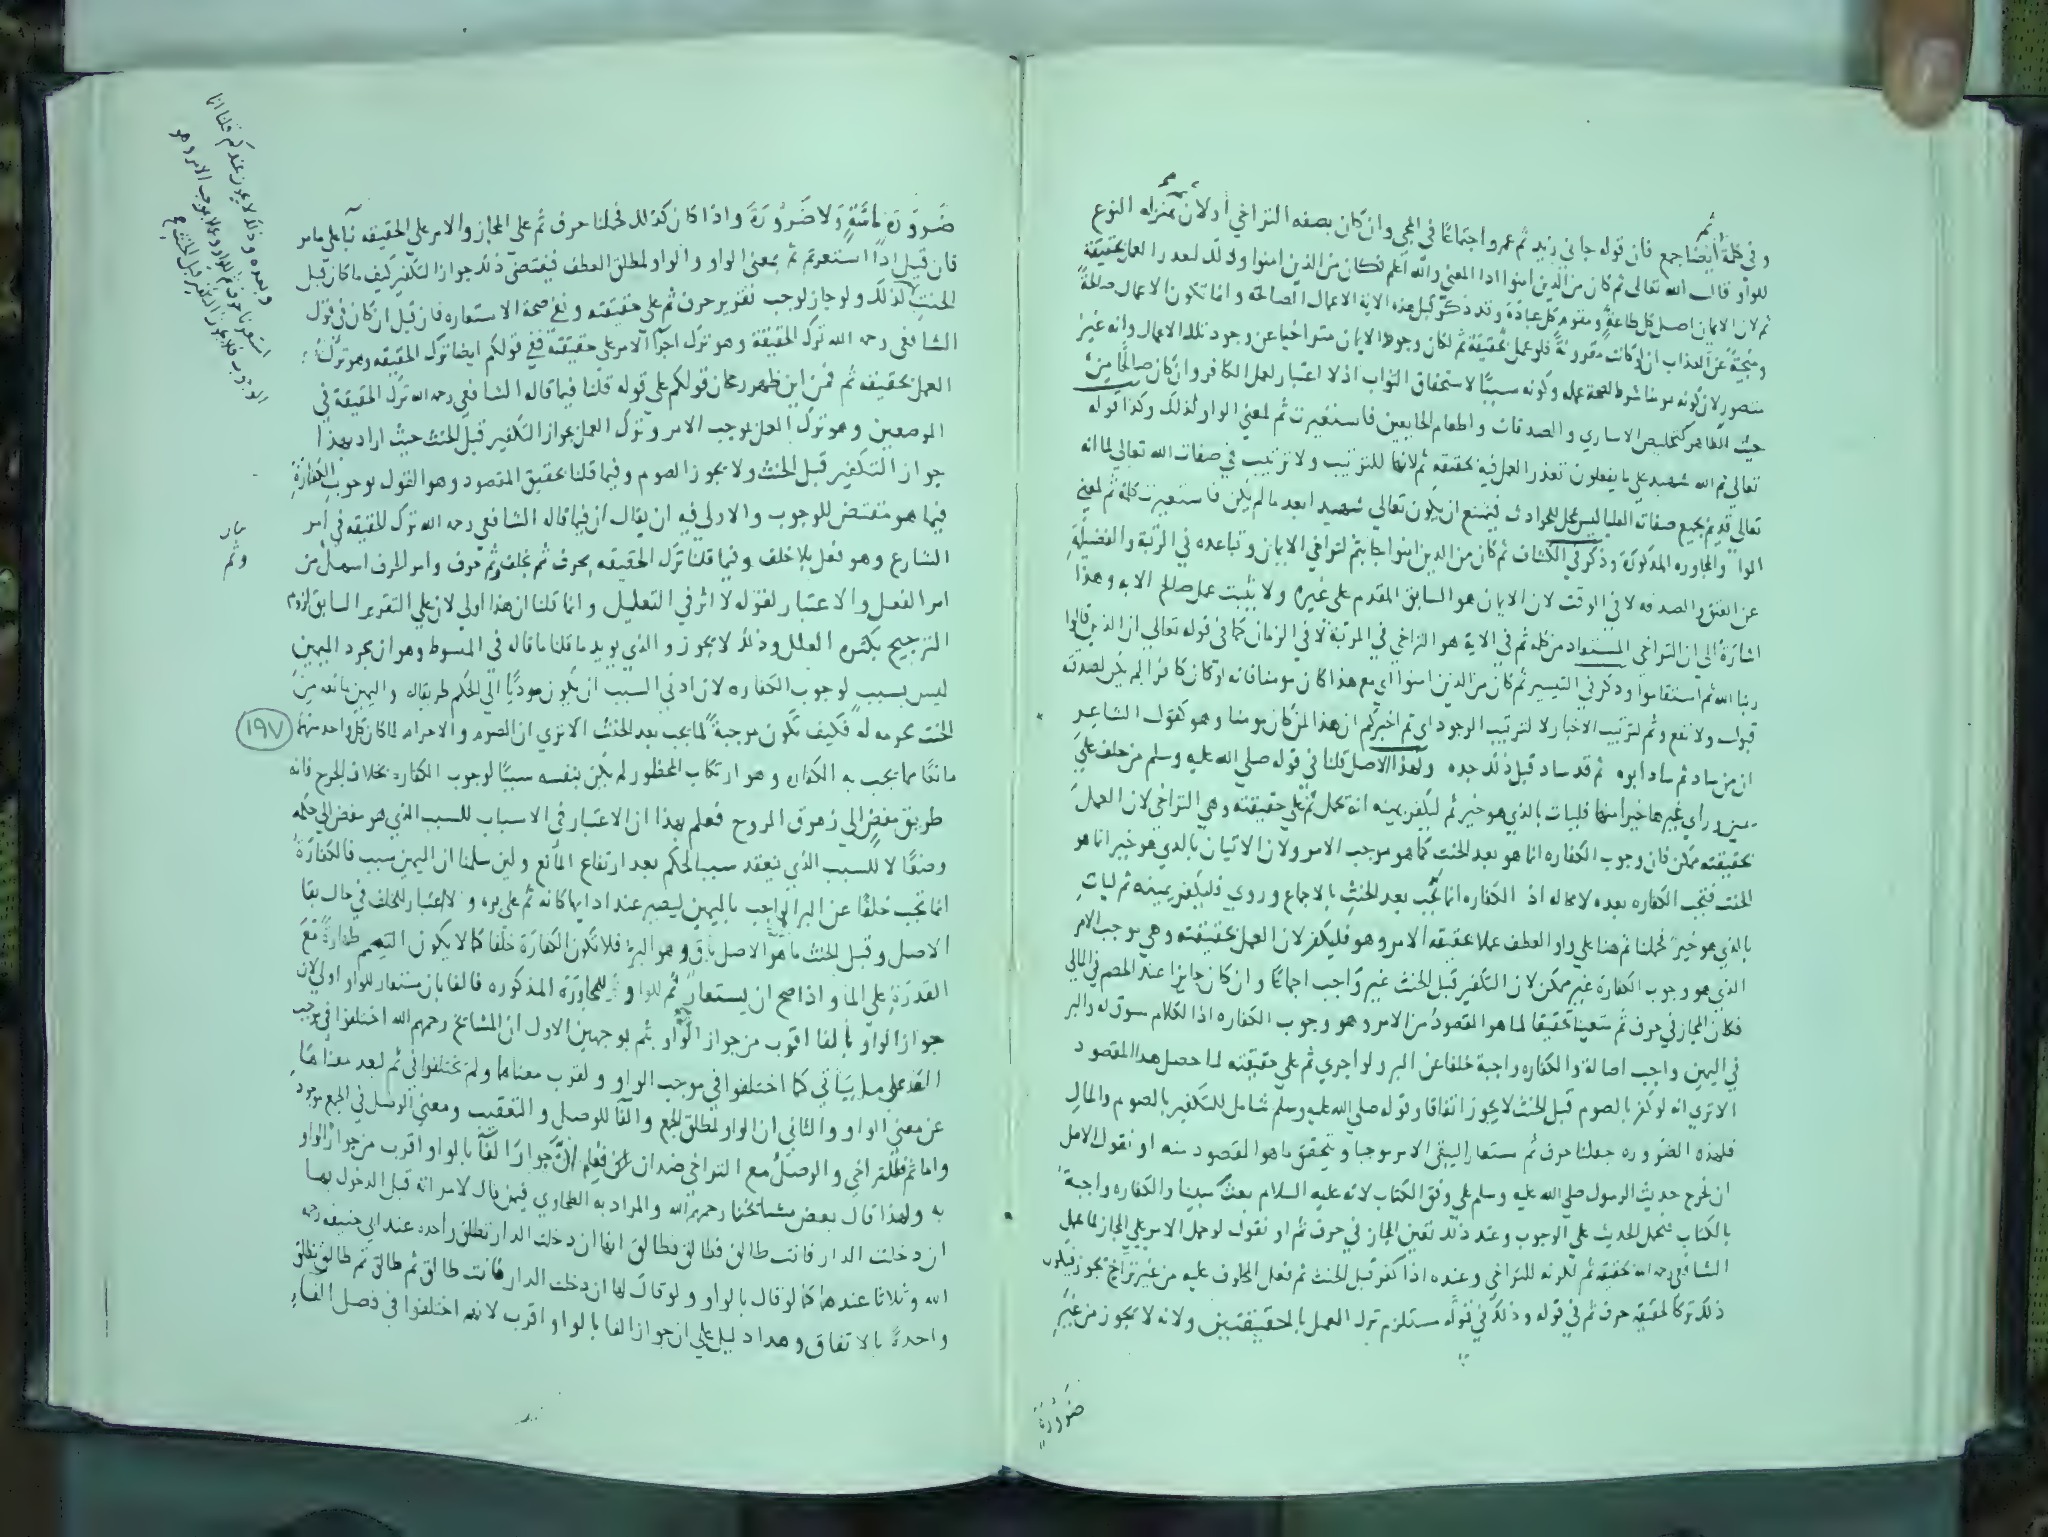 وفي كلمة ثم أيضا جمع فان قوله جاني زيد ثم عمرو اجتماعا في المجي وان كان بصفه التراخي أو لان ثم بمنزله النوع
للواو قال الله تعالى ثم كان من الذين امنوا المعنى والله اعلم وكان من الذين امنوا وذلك لتعذر العمل بحقيقة
ثم لان الايمان اصل كل طاعة ومقوم كل عبادة وقد ذكر قبل هذه الاية الاعمال الصالحة وانما تكون الاعمال صالحة
ومنجية عن العذاب ان لو كانت مقرونة فلو عمل بحقيقة ثم لكان وجود الايمان متراخيا عن وجود تلك الاعمال وانه غير
متصور لان كونه مومنا شرط لصحة عمله وكونه سببا لاستحقاق الثواب اذ لا اعتبار لعمل الكافر وان كان صالحا من
حيث الظاهر كتخليص الاساري والصدقات واطعام الجايعين فاستعيرت ثم لمعنى الواو لذلك وكذا قوله
تعالى ثم الله شهيد على ما يفعلون تعذر العمل فيه بحقيقة ثم لانها للترتيب ولا ترتيب في صفات الله تعالى لما انه
تعالى قديم بجميع صفاته العليا ليس بمحل للحوادث فيمتنع ان يكون تعالى شهيدا بعد ما لم يكن فاستعيرت كلمة ثم لمعنى
الواو والمجاوره المذكورة وذكر في الكشاف ثم كان من الذين امنوا جا بثم لتراخي الايمان وتباعده في الرتبة والفضيلة
عن العتق والصدقه لا في الوقت لان الايمان هو السابق المقدم على غيره ولا يثبت عمل صالح الا به وهذا
اشارة الى ان التراخي المستفاد من كلمة ثم في الاية هو التراخي في المرتبة لا في الزمان كما في قوله تعالى ان الذين قالوا
ربنا الله ثم استقاموا وذكر في التيسير ثم كان من الذين امنوا اي مع هذا كان مومنا فانه لو كان كافرا لم يكن لصدقته
قبول ولا نفع وثم لترتيب الاخبار لا لترتيب الوجود اي ثم اخبركم ان هذا لمن كان مومنا وهو كقول الشاعر
ان من ساد ثم ساد ابوه ثم قد ساد قبل ذلك جده ولهذا الاصل قلنا في قوله صلى الله عليه وسلم من حلف على
يمين وراي غيرها خيرا منها فليات بالذي هو خير ثم ليكفر يمينه انه يحمل ثم على حقيقته وهي التراخي لان العمل
بحقيقته ممكن فان وجوب الكفاره انما هو بعد الحنث كما هو موجب الامر ولان الاتيان بالذي هو خير انما هو
الحنث فتجب الكفاره بعده لا محاله اذ الكفاره انما تجب بعد الحنث بالاجماع وروي فليكفر يمينه ثم ليات
بالذي هو خير فحملنا ثم هنا على واو العطف عملا بحقيقة الامر وهو فليكفر لان العمل بحقيقته وهي موجب الامر
الذي هو وجوب الكفارة غير ممكن لان التكفير قبل الحنث غير واجب اجماعا وان كان جايزا عند الخصم في المالي
فكان المجاز في حرف ثم متعينا تحقيقا لما هو المقصود من الامر وهو وجوب الكفاره اذا الكلام سوق له والبر
في اليمين واجب اصالة والكفاره واجبة خلفا عن البر ولو اجري ثم على حقيقته لما حصل هذا المقصود
الا تري انه لو كفر بالصوم قبل الحنث لا يجوز اتفاقا وقوله صلى الله عليه وسلم شامل للتكفير بالصوم والمال
فلهذه الضروره جعلنا حرف ثم مستعارا ليبقى الامر موجبا ويتحقق ما هو المقصود منه او نقول الاصل
ان يخرج حديث الرسول صلى الله عليه وسلم على وفق الكتاب لانه عليه السلام بعث مبينا والكفاره واجبة
بالكتاب فيحمل الحديث على الوجوب وعند ذلك تعين المجاز في حرف ثم او نقول لو حمل الامر على المجاز لما عمل
الشافعي رحمه الله بحقيقة ثم لكونه للتراخي وعنده اذا كفر قبل الحنث ثم فعل المحلوف عليه من غير تراخ يجوز فيكون
ذلك ترك الحقيقة حرف ثم في قوله وذلك في قوله مستلزم ترك العمل بالحقيقتين ولانه لا يجوز من غير
ضرورة
ضرورة ماسة ولا ضرورة واذا كان كذلك فحملنا حرف ثم على المجاز والامر على الحقيقه بنا على ما مر
فان قيل اذا استعرتم ثم بمعنى الواو والواو لمطلق العطف فيقتضي ذلك جواز التكفير كيف ما كان قبل
الحنث لذلك ولو جاز لوجب تقرير حرف ثم على حقيقته ونفي صحة الاستعاره فان قيل ان كان في قول
الشافعي رحمه الله ترك الحقيقة وهو ترك اجرا الامر على حقيقته ففي قولكم ايضا ترك الحقيقه وهو ترك
العمل بحقيقه ثم فمن اين ظهر رجحان قولكم على قوله قلنا فيما قاله الشافعي رحمه الله ترك الحقيقة في
الموضعين وهو ترك العمل بوجب الامر وترك العمل بجواز التكفير قبل الحنث حيث اراد بهذا
جواز التكفير قبل الحنث ولا يجوز الصوم وفيما قلنا تحقيق المقصود وهو القول بوجوب الكفارة
فيما هو مقتض للوجوب والاولى فيه ان يقال ان فيما قاله الشافعي رحمه الله ترك الحقيقه في امر
الشارع وهو فعل بلا خلف وفيما قلنا ترك الحقيقه بحرف ثم بخلف وثم حرف وامر الحرف اسهل من
امر الفعل والاعتبار لقوله لا اثر في التعليل وانما قلنا ان هذا اولى لان على التقرير السابق لزم
الترجيح بكثره العلل وذلك لا يجوز والذي يويد ما قلنا ما قاله في المبسوط وهو ان مجرد اليمين
ليس بسبب لوجوب الكفاره لان ادنى السبب ان يكون موديا الى الحكم طريقا له واليمين مانعه من
الحنث محرمه له فكيف تكون موجبة لما يجب بعد الحنث الا تري ان الصوم والاحرام لما كان كل واحد منهما
مانعا مما تجب به الكفاره وهو ارتكاب المحظور لم يكن بنفسه سببا لوجوب الكفاره بخلاف الجرح فانه
طريق مفض الى زهوق الروح فعلم بهذا ان الاعتبار في الاسباب للسبب الذي هو مفض الى حكمه
وضعا لا للسبب الذي ينعقد سببا لحكم بعد ارتفاع المانع ولين سلمنا ان اليمين سبب فالكفارة
انما تجب خلفا عن البر الواجب باليمين ليصير عند ادايها كانه تم على بره ولا اعتبار للخلف في حال بقا
الاصل وقبل الحنث ما هو الاصل باق وهو البر فلا تكون الكفارة خلفا كما لا يكون التيمم طهارة مع
القدرة على الما واذا صح ان يستعار ثم للواو للمجاورة المذكوره فالفا بان يستعار للواو اولى لان
جواز الواو بالفا اقرب من جواز الواو بثم لوجهين الاول ان المشائخ رحمهم الله اختلفوا في موجب
الفا على ما سياتي كما اختلفوا في موجب الواو ولقرب معناهما ولم يختلفوا في ثم لبعد معناها
عن معنى الواو والثاني ان الواو لمطلق الجمع والفا للوصل والتعقيب ومعنى الوصل في الجمع موجود
واما ثم فللتراخي والوصل مع التراخي ضدان فعلم ان جواز الفا بالواو اقرب من جواز الواو
به ولهذا قال بعض مشائخنا رحمهم الله والمراد به الطحاوي فيمن قال لامراته قبل الدخول بها
ان دخلت الدار فانت طالق فطالق فطالق انها ان دخلت الدار تطلق واحده عند ابي حنيفه رحمه
الله وثلاثا عندهما كما لو قال بالواو ولو قال لها ان دخلت الدار فانت طالق ثم طالق ثم طالق تطلق
واحدة بالاتفاق وهذا دليل على ان جواز الفا بالواو اقرب لانهم اختلفوا في فصل الفا
وبعده وذلك لا يجوز عندكم قلنا انا
استعرنا حرف ثم للواو عملا بوجب الامر وهو
الوجوب فلا يجوز التكفير قبل الحنث
وثم
١٩٧